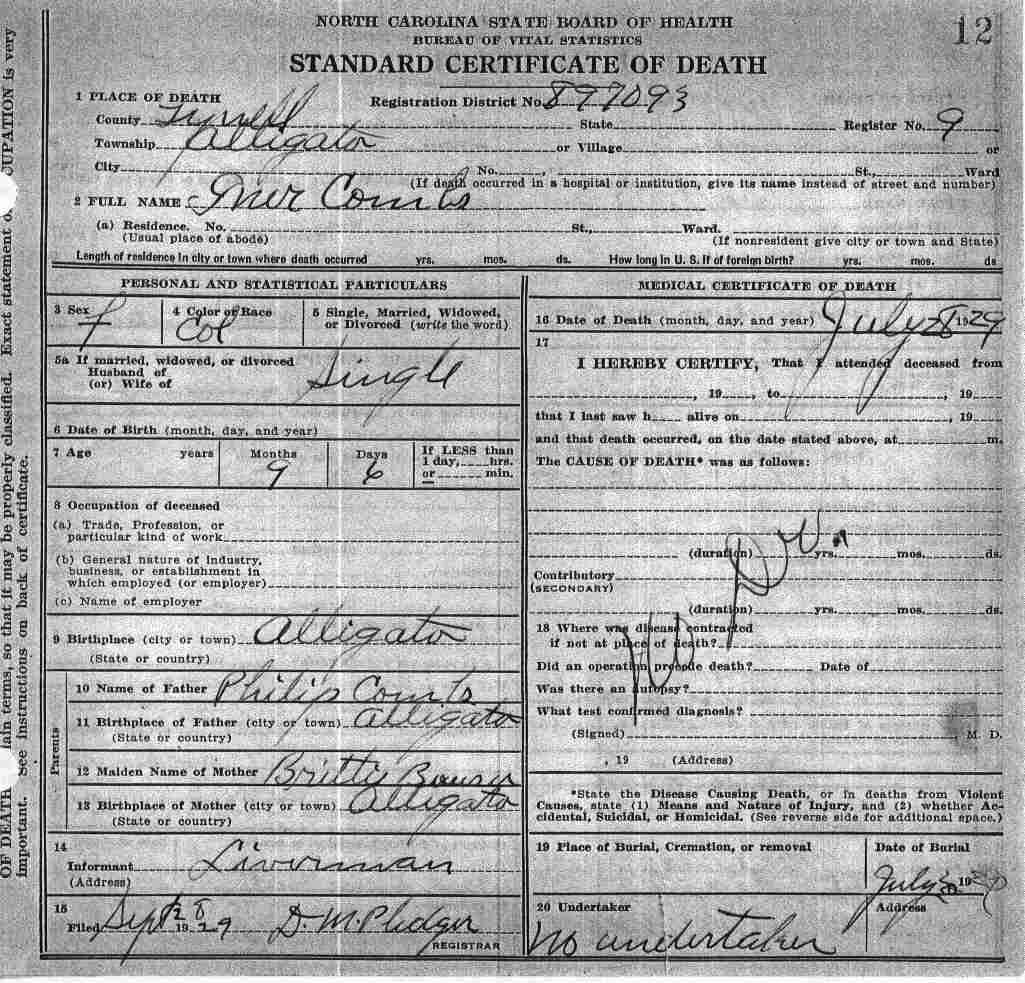 NORTH CAROLINA STATE BOARD OF HEALTH
BUREAU OF VITAL STATISTICS
STANDARD CERTIFICATE OF DEATH
12
1 PLACE OF DEATH
Registration District No. 897093
County Tyrrell State Register No. 9
Township Alligator or Village or
City No. , St., Ward
(If death occurred in a hospital or institution, give its name instead of street and number)
2 FULL NAME Combs
(a) Residence. No. St., Ward.
(Usual place of abode) (If nonresident give city or town and State)
Length of residence in city or town where death occurred yrs. mos. ds. How long in U. S. if of foreign birth? yrs. mos. ds
PERSONAL AND STATISTICAL PARTICULARS
3 Sex f
4 Color or Race Col
5 Single, Married, Widowed,
or Divorced (write the word)
5a If married, widowed, or divorced
Husband of
(or) Wife of
Single
6 Date of Birth (month, day, and year)
7 Age years Months 9 Days 6 If LESS than
1 day, hrs.
or min.
8 Occupation of deceased
(a) Trade, Profession, or
particular kind of work
(b) General nature of industry,
business, or establishment in
which employed (or employer)
(c) Name of employer
9 Birthplace (city or town) Alligator
(State or country)
Parents
10 Name of Father Philip Combs
11 Birthplace of Father (city or town) Alligator
(State or country)
12 Maiden Name of Mother Britty Bowser
13 Birthplace of Mother (city or town) Alligator
(State or country)
14
Informant Liverman
(Address)
15
Filed Sept 28 1929 D. M. Pledger
REGISTRAR
MEDICAL CERTIFICATE OF DEATH
16 Date of Death (month, day, and year) July 28 1929
17
I HEREBY CERTIFY, That I attended deceased from
, 19 , to , 19
that I last saw h alive on , 19
and that death occurred, on the date stated above, at m.
The CAUSE OF DEATH* was as follows:
(duration) yrs. mos. ds.
Contributory
(SECONDARY)
(duration) yrs. mos. ds.
No Dr.
18 Where was disease contracted
if not at place of death?
Did an operation precede death? Date of
Was there an autopsy?
What test confirmed diagnosis?
(Signed) , M. D.
, 19 (Address)
*State the Disease Causing Death, or in deaths from Violent
Causes, state (1) Means and Nature of Injury, and (2) whether Ac-
cidental, Suicidal, or Homicidal. (See reverse side for additional space.)
19 Place of Burial, Cremation, or removal
Date of Burial
July 19
20 Undertaker
Address
No undertaker
OF DEATH lain terms, so that it may be properly classified. Exact statement o UPATION is very
important. See instructions on back of certificate.